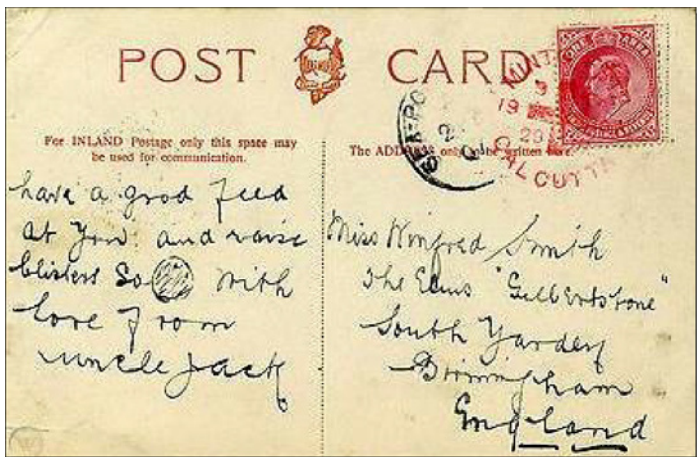 POST CARD
For INLAND Postage only this space may
be used for communication.
The ADDRESS only to be written here.
ONE ANNA
MINT
9
19
29
CALCUTTA
SEA PO
have a good feed
at you and raise
blisters So With
love from
uncle Jack
Miss Winfred Smith
The Elms "Gilbertstone"
South Yardley
Birmingham
England